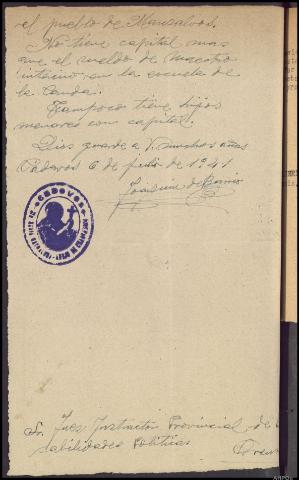 el pueblo de Manzalvos.
No tiene capital mas
que el sueldo de maestro
interino en la escuela de
la
Tampoco tiene hijos
menares con capital.
Dios guarde a V. muchos años
6 de de 1941
Joaquin de
Sr. Juez Instructor Provincial de
sabilidades Politicas